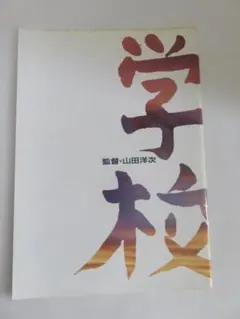 学校
監督・山田洋次